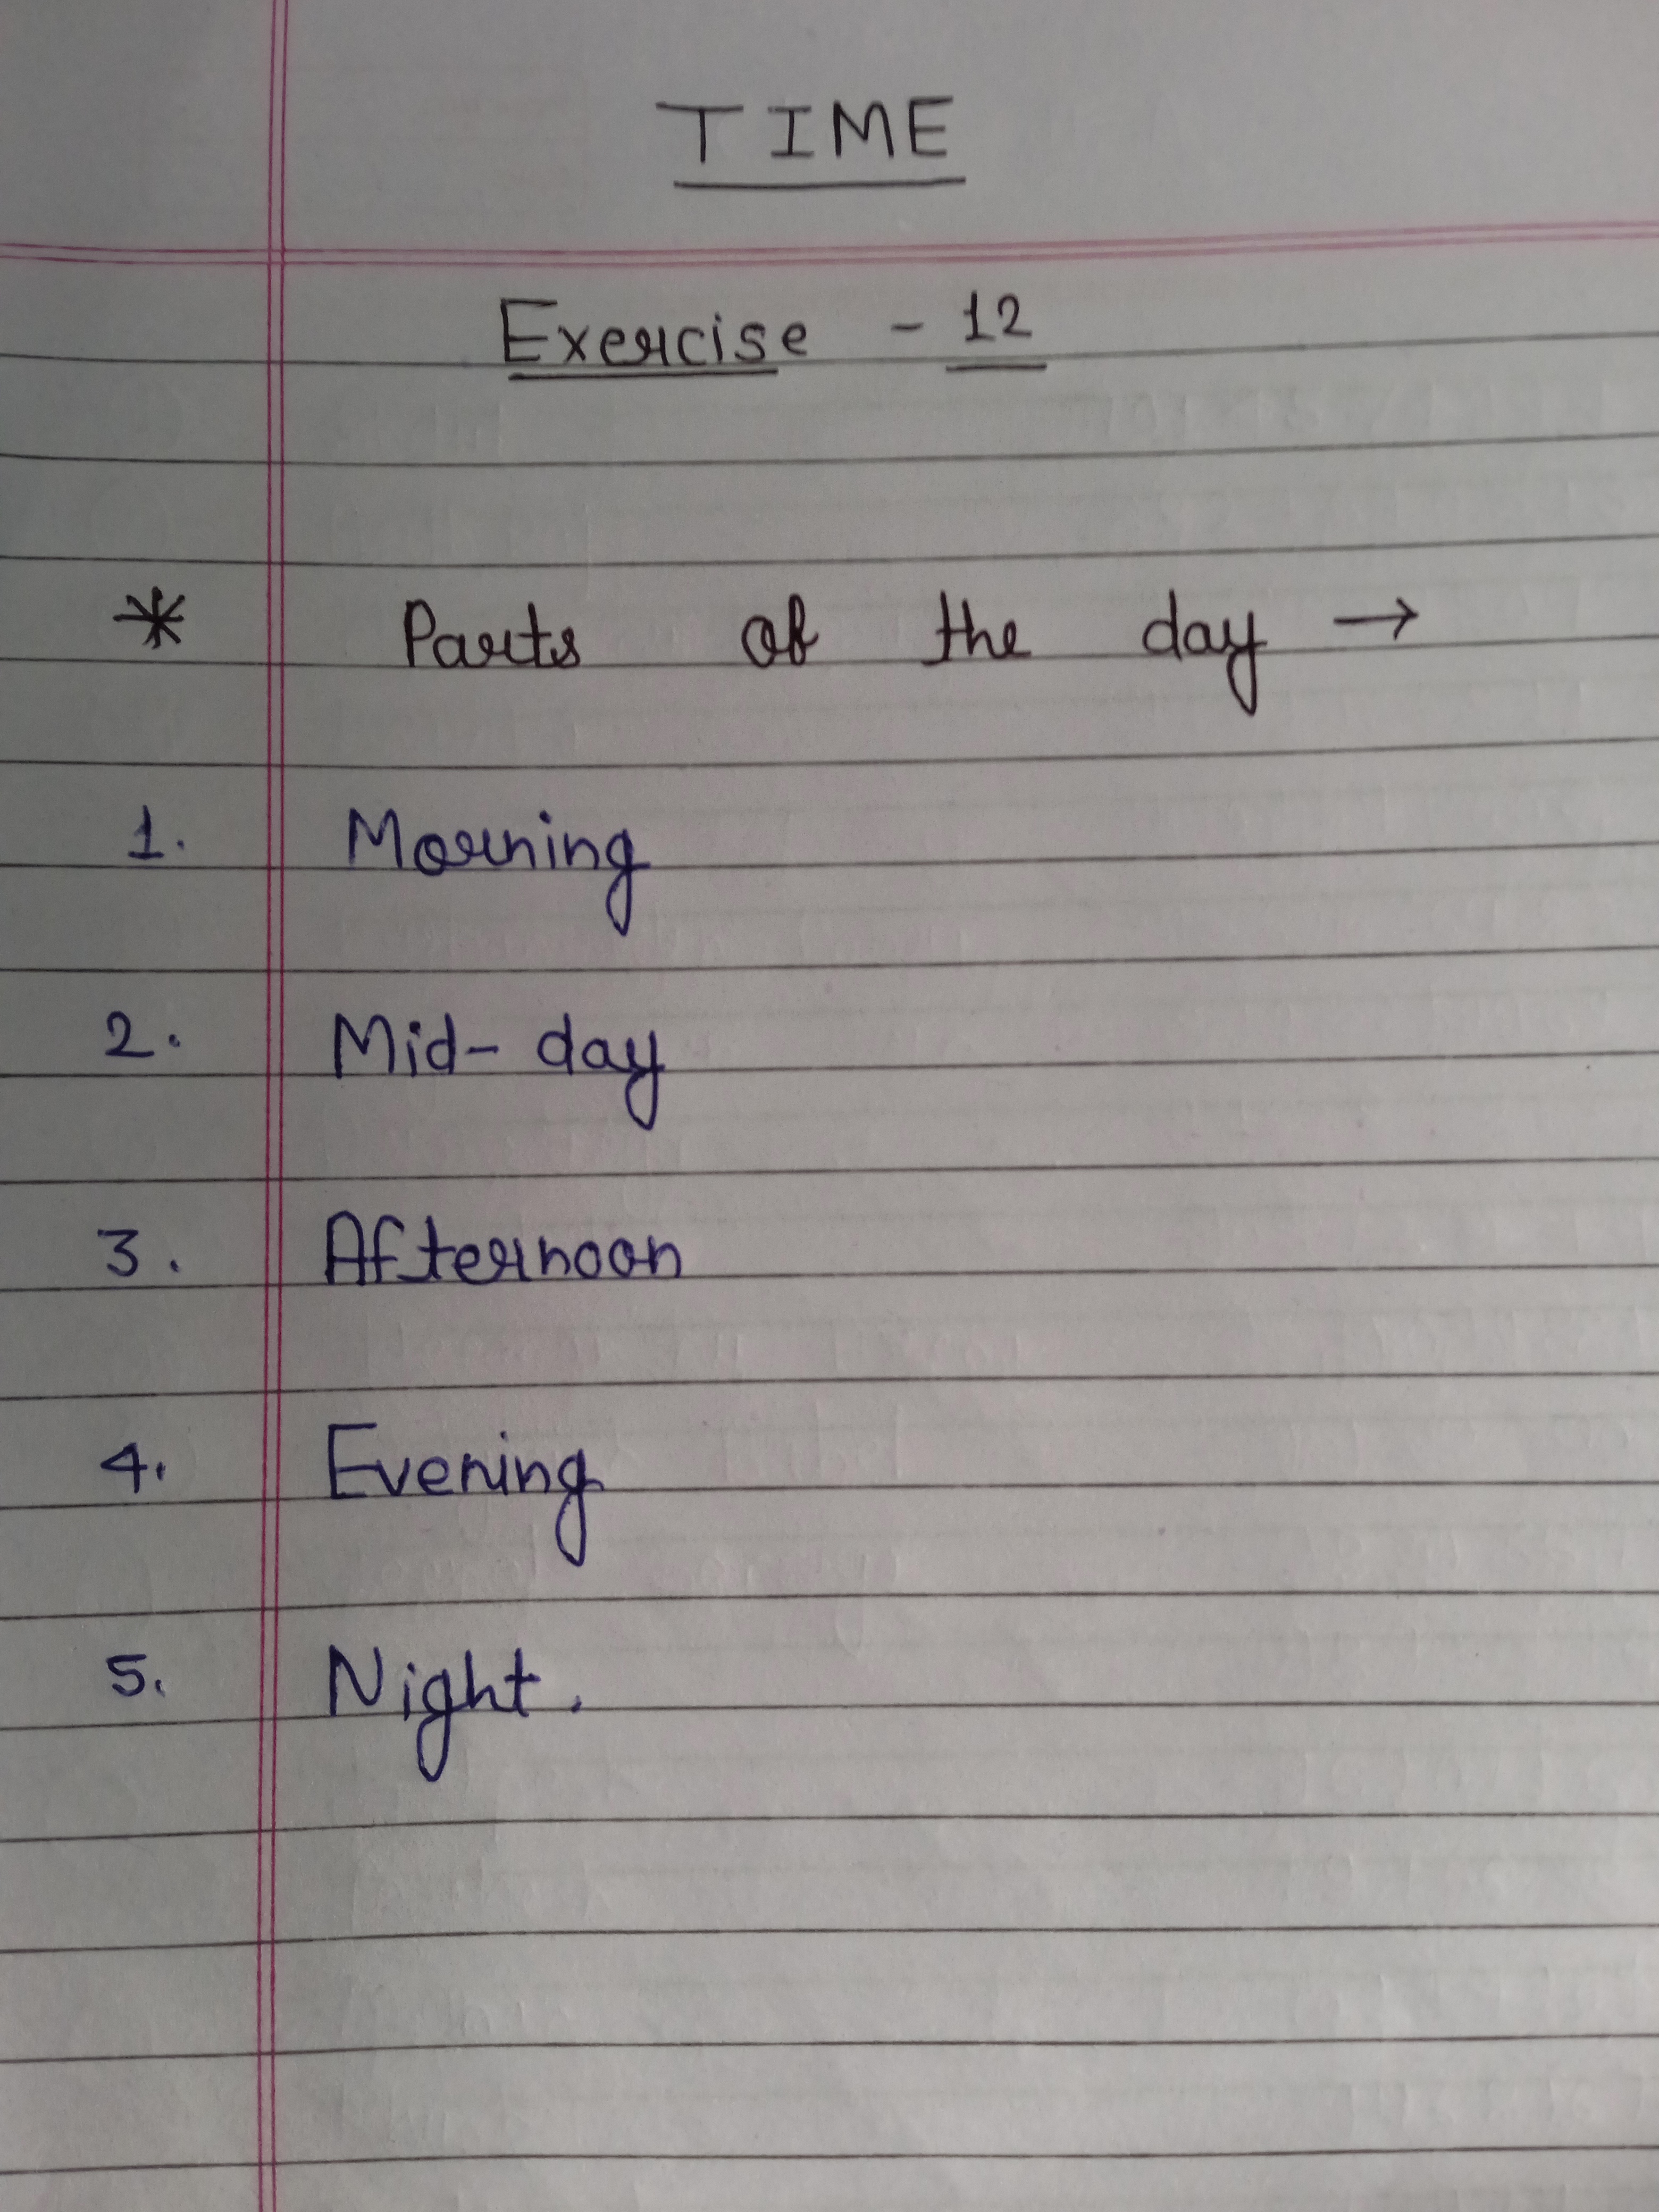 TIME
Exercise - 12
* Parts of the day →
1. Morning
2. Mid-day
3. Afternoon
4. Evening
5. Night.